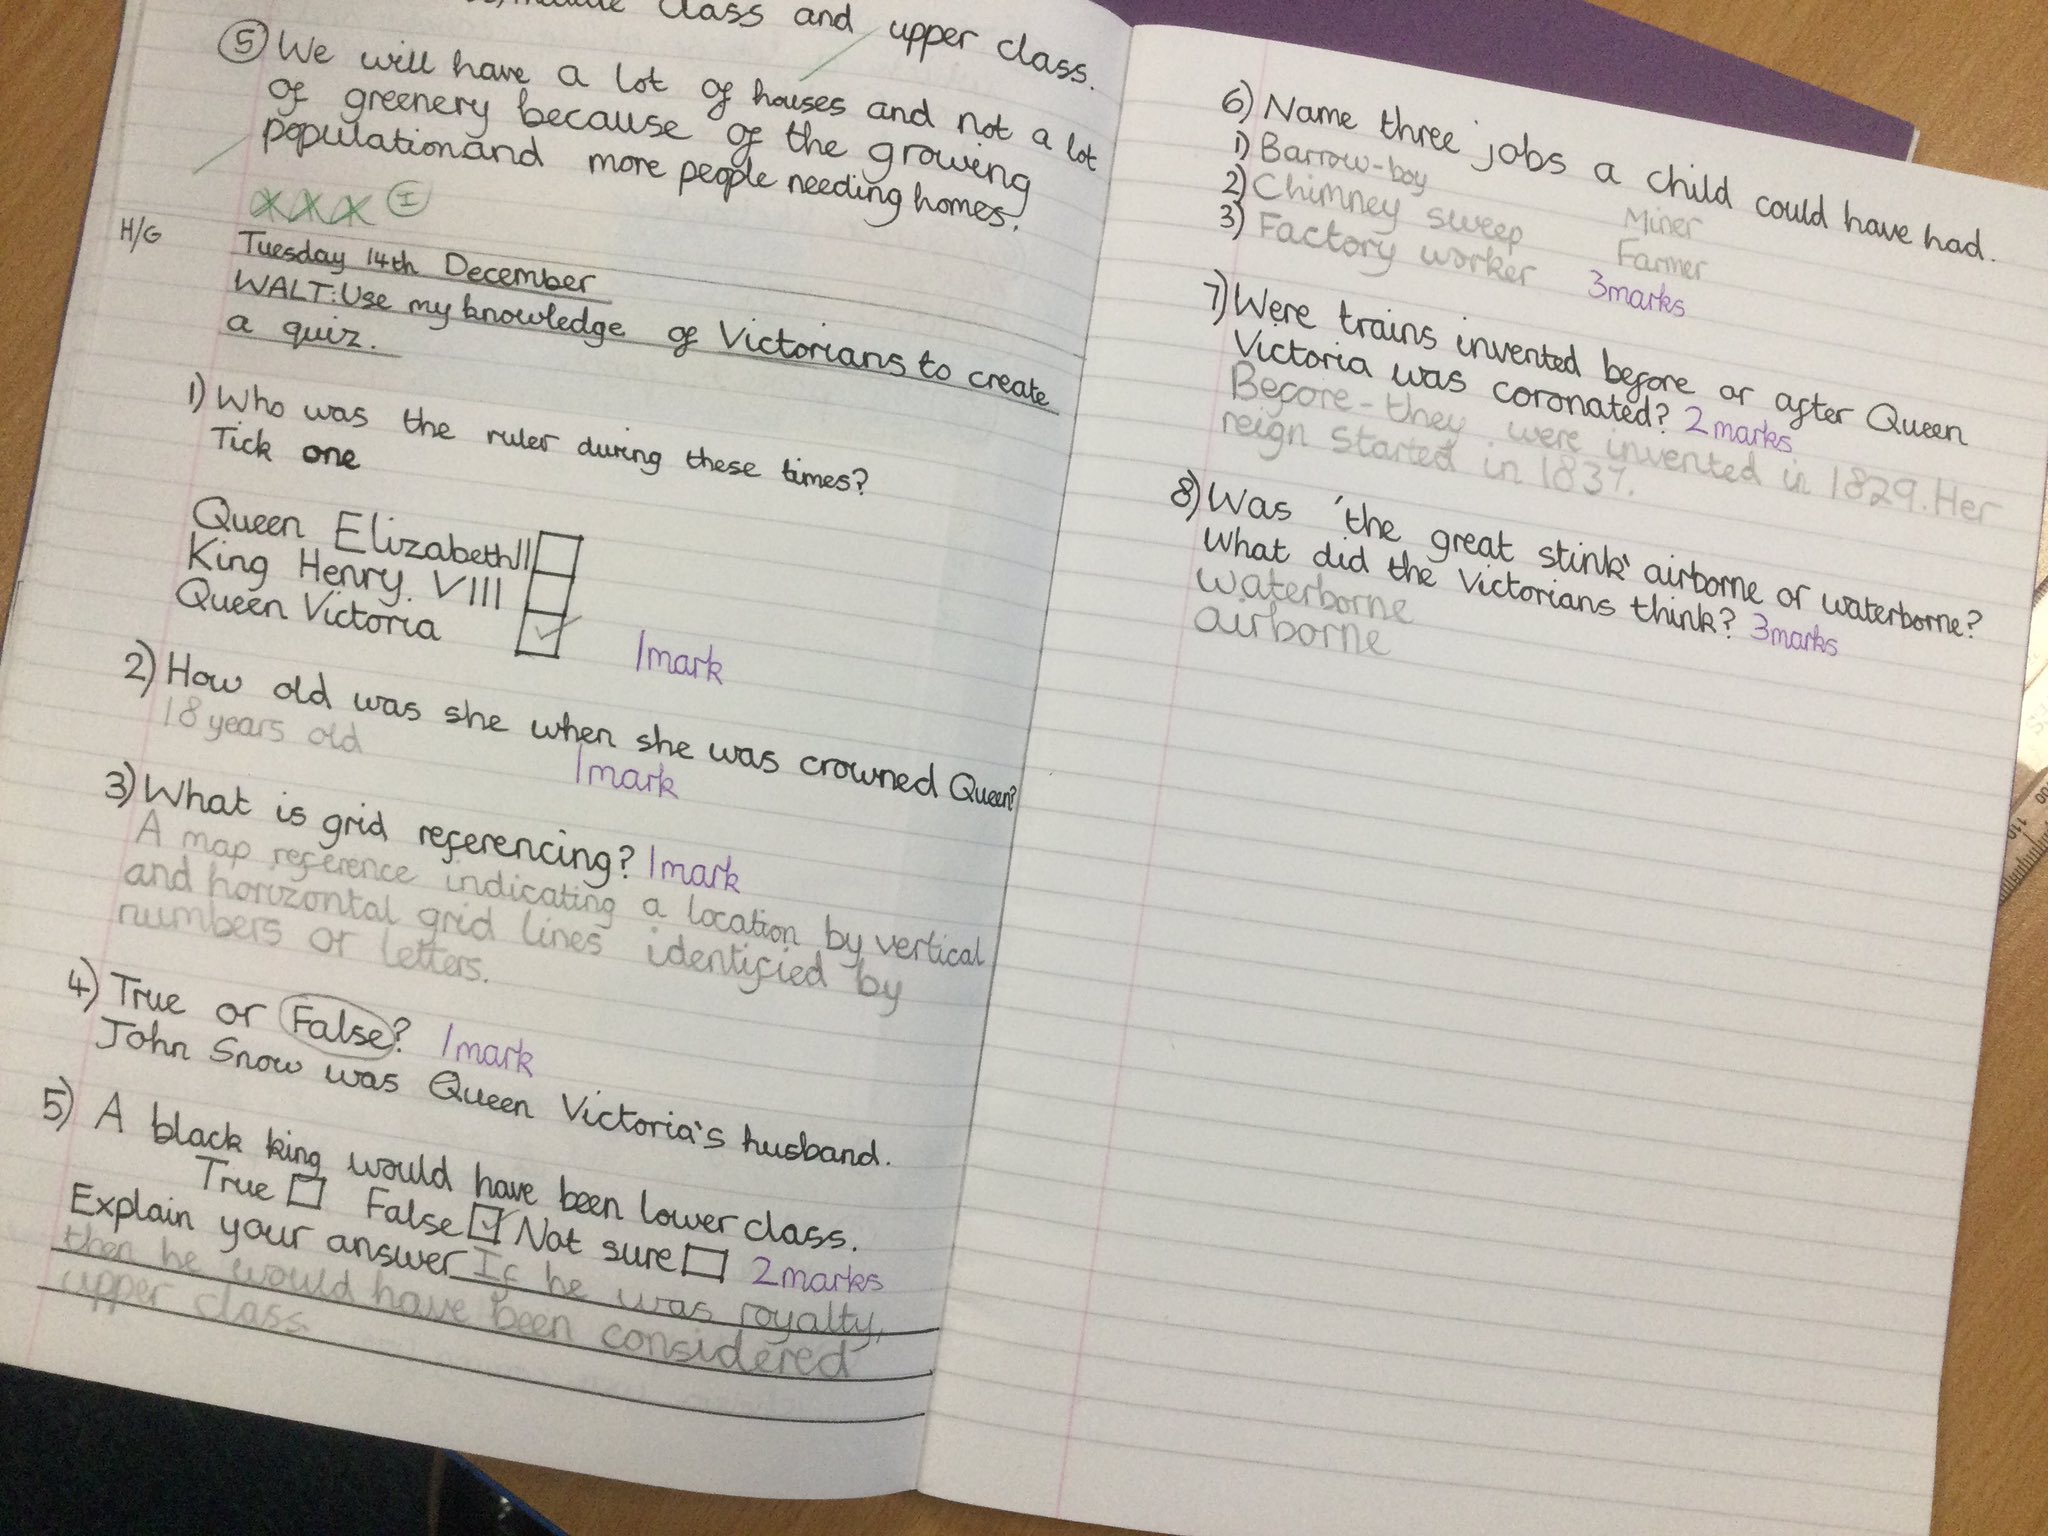 class and upper class.
⑤ We will have a lot of houses and not a lot
of greenery because of the growing
populationand more people needing homes.
I
H/G
Tuesday 14th December
WALT: Use my knowledge of Victorians to create
a quiz.
1) Who was the ruler during these times?
Tick one
Queen Elizabeth II
King Henry VIII
Queen Victoria
1mark
2) How old was she when she was crowned Queen?
18 years old
1mark
3) What is grid referencing? 1mark
A map reference indicating a location by vertical
and horizontal grid lines identified by
numbers or letters.
4) True or False? 1mark
John Snow was Queen Victoria's husband.
5) A black king would have been lower class.
True False Not sure 2marks
Explain your answer If he was royalty,
then he would have been considered
upper class
6) Name three jobs a child could have had.
1) Barrow-boy
2) Chimney sweep Miner
3) Factory worker Farmer
3marks
7) Were trains invented before or after Queen
Victoria was coronated? 2marks
Before - they were invented in 1829. Her
reign started in 1837.
8) Was 'the great stink' airborne or waterborne?
What did the Victorians think? 3marks
waterborne
airborne